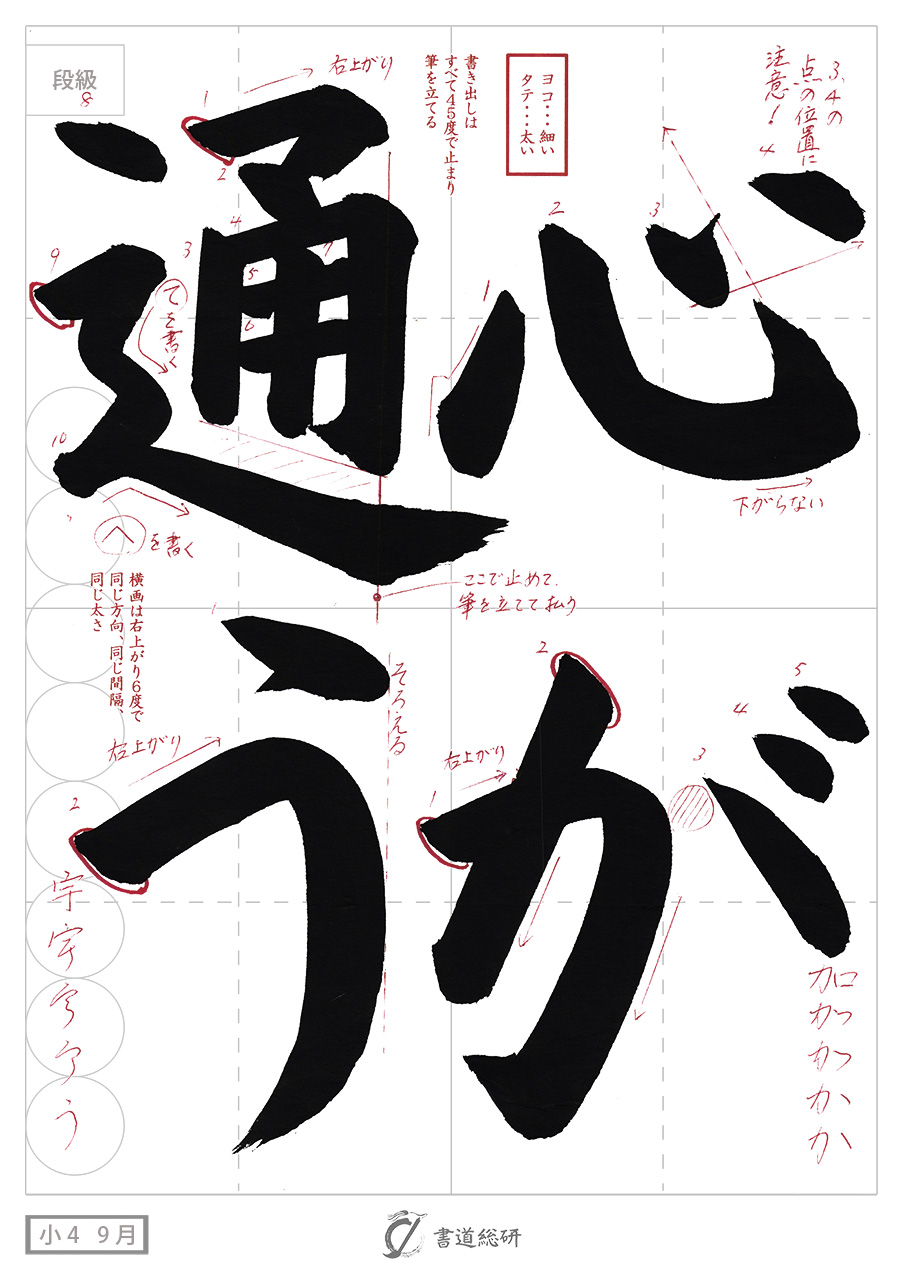 心が
通う
3、4の
点の位置に
注意！
4
3
2
1
ヨコ・・・細い
タテ・・・太い
書き出しは
すべて45度で止まり
筆を立てる
右上がり
1
2
3
4
5
6
7
段級
8
9
てを書く
10
へを書く
下がらない
ここで止めて、
筆を立てて払う
横画は右上がり6度で
同じ方向、同じ間隔、
同じ太さ
1
そろえる
右上がり
2
宇
う
2
5
4
3
右上がり
1
加
か
小4 9月
書道総研